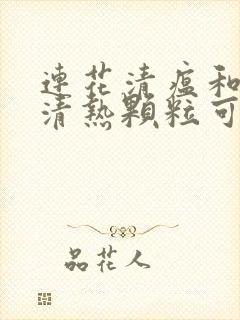 連花清瘟和
清熱顆粒可
品花人